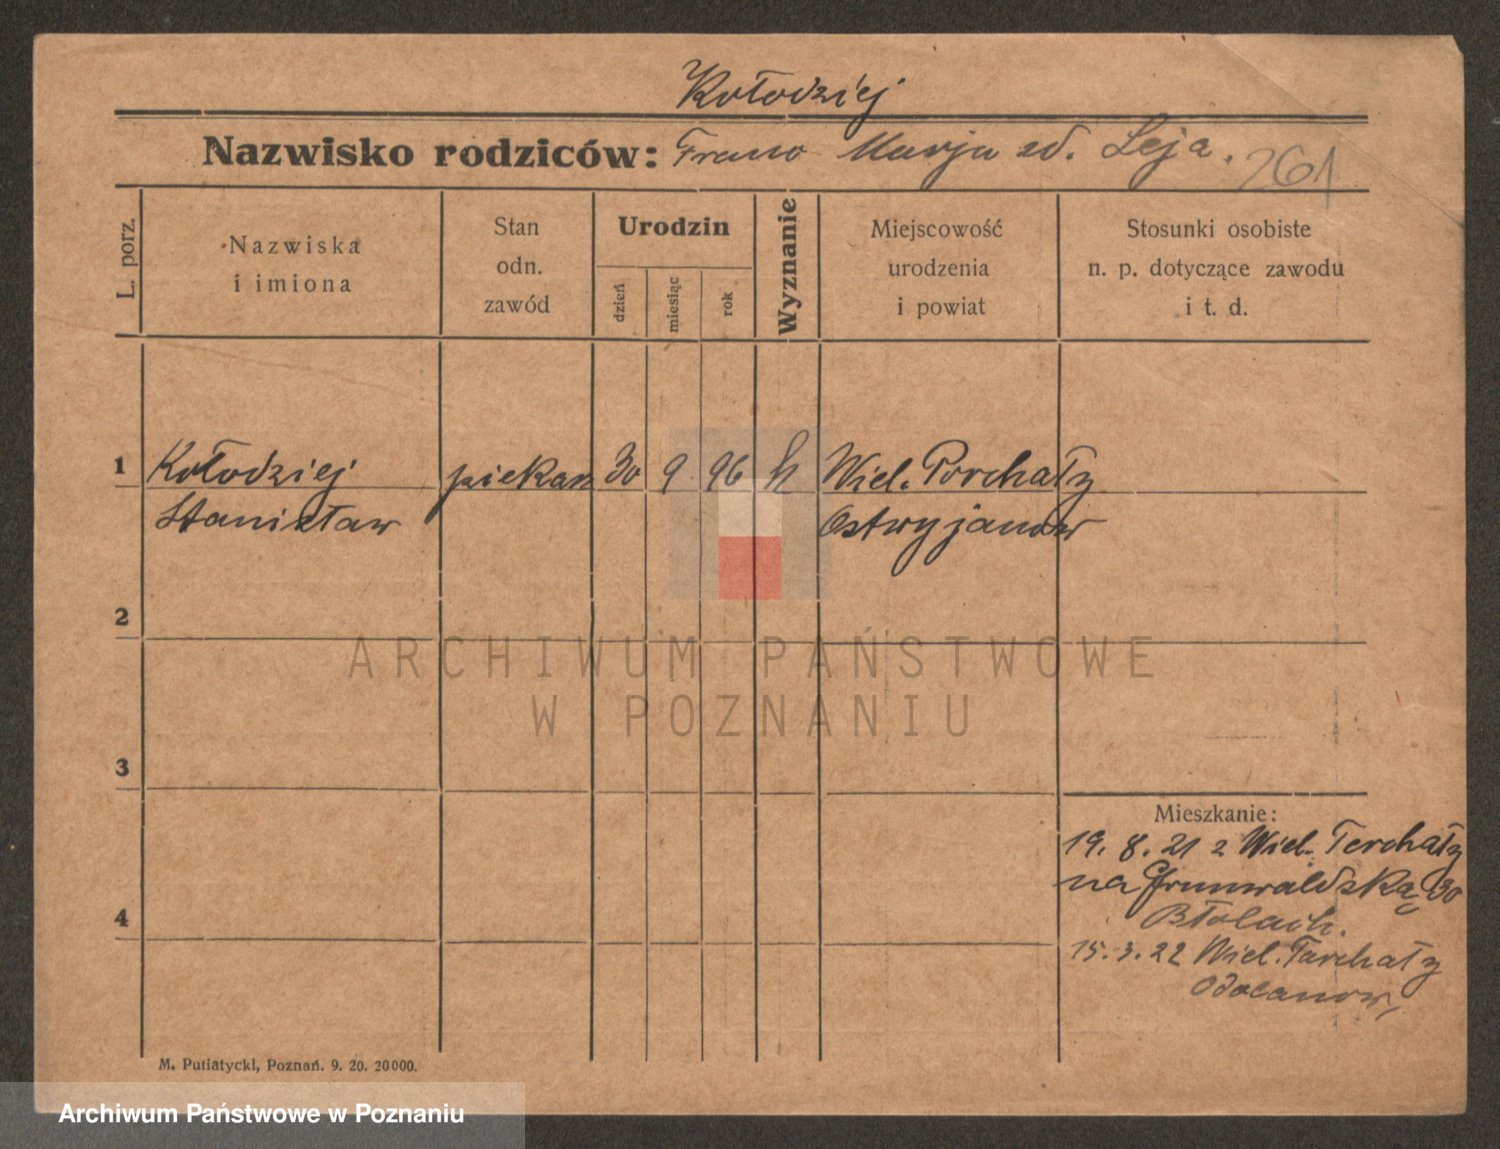 Kołodziej
Nazwisko rodziców: Franc Marja zd. Leja.
261
L. porz.
Nazwiska
i imiona
Stan
odn.
zawód
Urodzin
dzień
miesiąc
rok
Wyznanie
Miejscowość
urodzenia
i powiat
Stosunki osobiste
n. p. dotyczące zawodu
i t. d.
1 Kołodziej piekarz 30 9 96 k Wiel. Torchały
Stanisław
2
3
4
Mieszkanie:
19. 8. 21 z Wiel. Torchały
na Grunwaldską 30
15. 3. 22 Wiel. Torchały
Odolanow
M. Putiatycki, Poznań. 9. 20. 20000.
ARCHIWUM PAŃSTWOWE
W POZNANIU
Archiwum Państwowe w Poznaniu